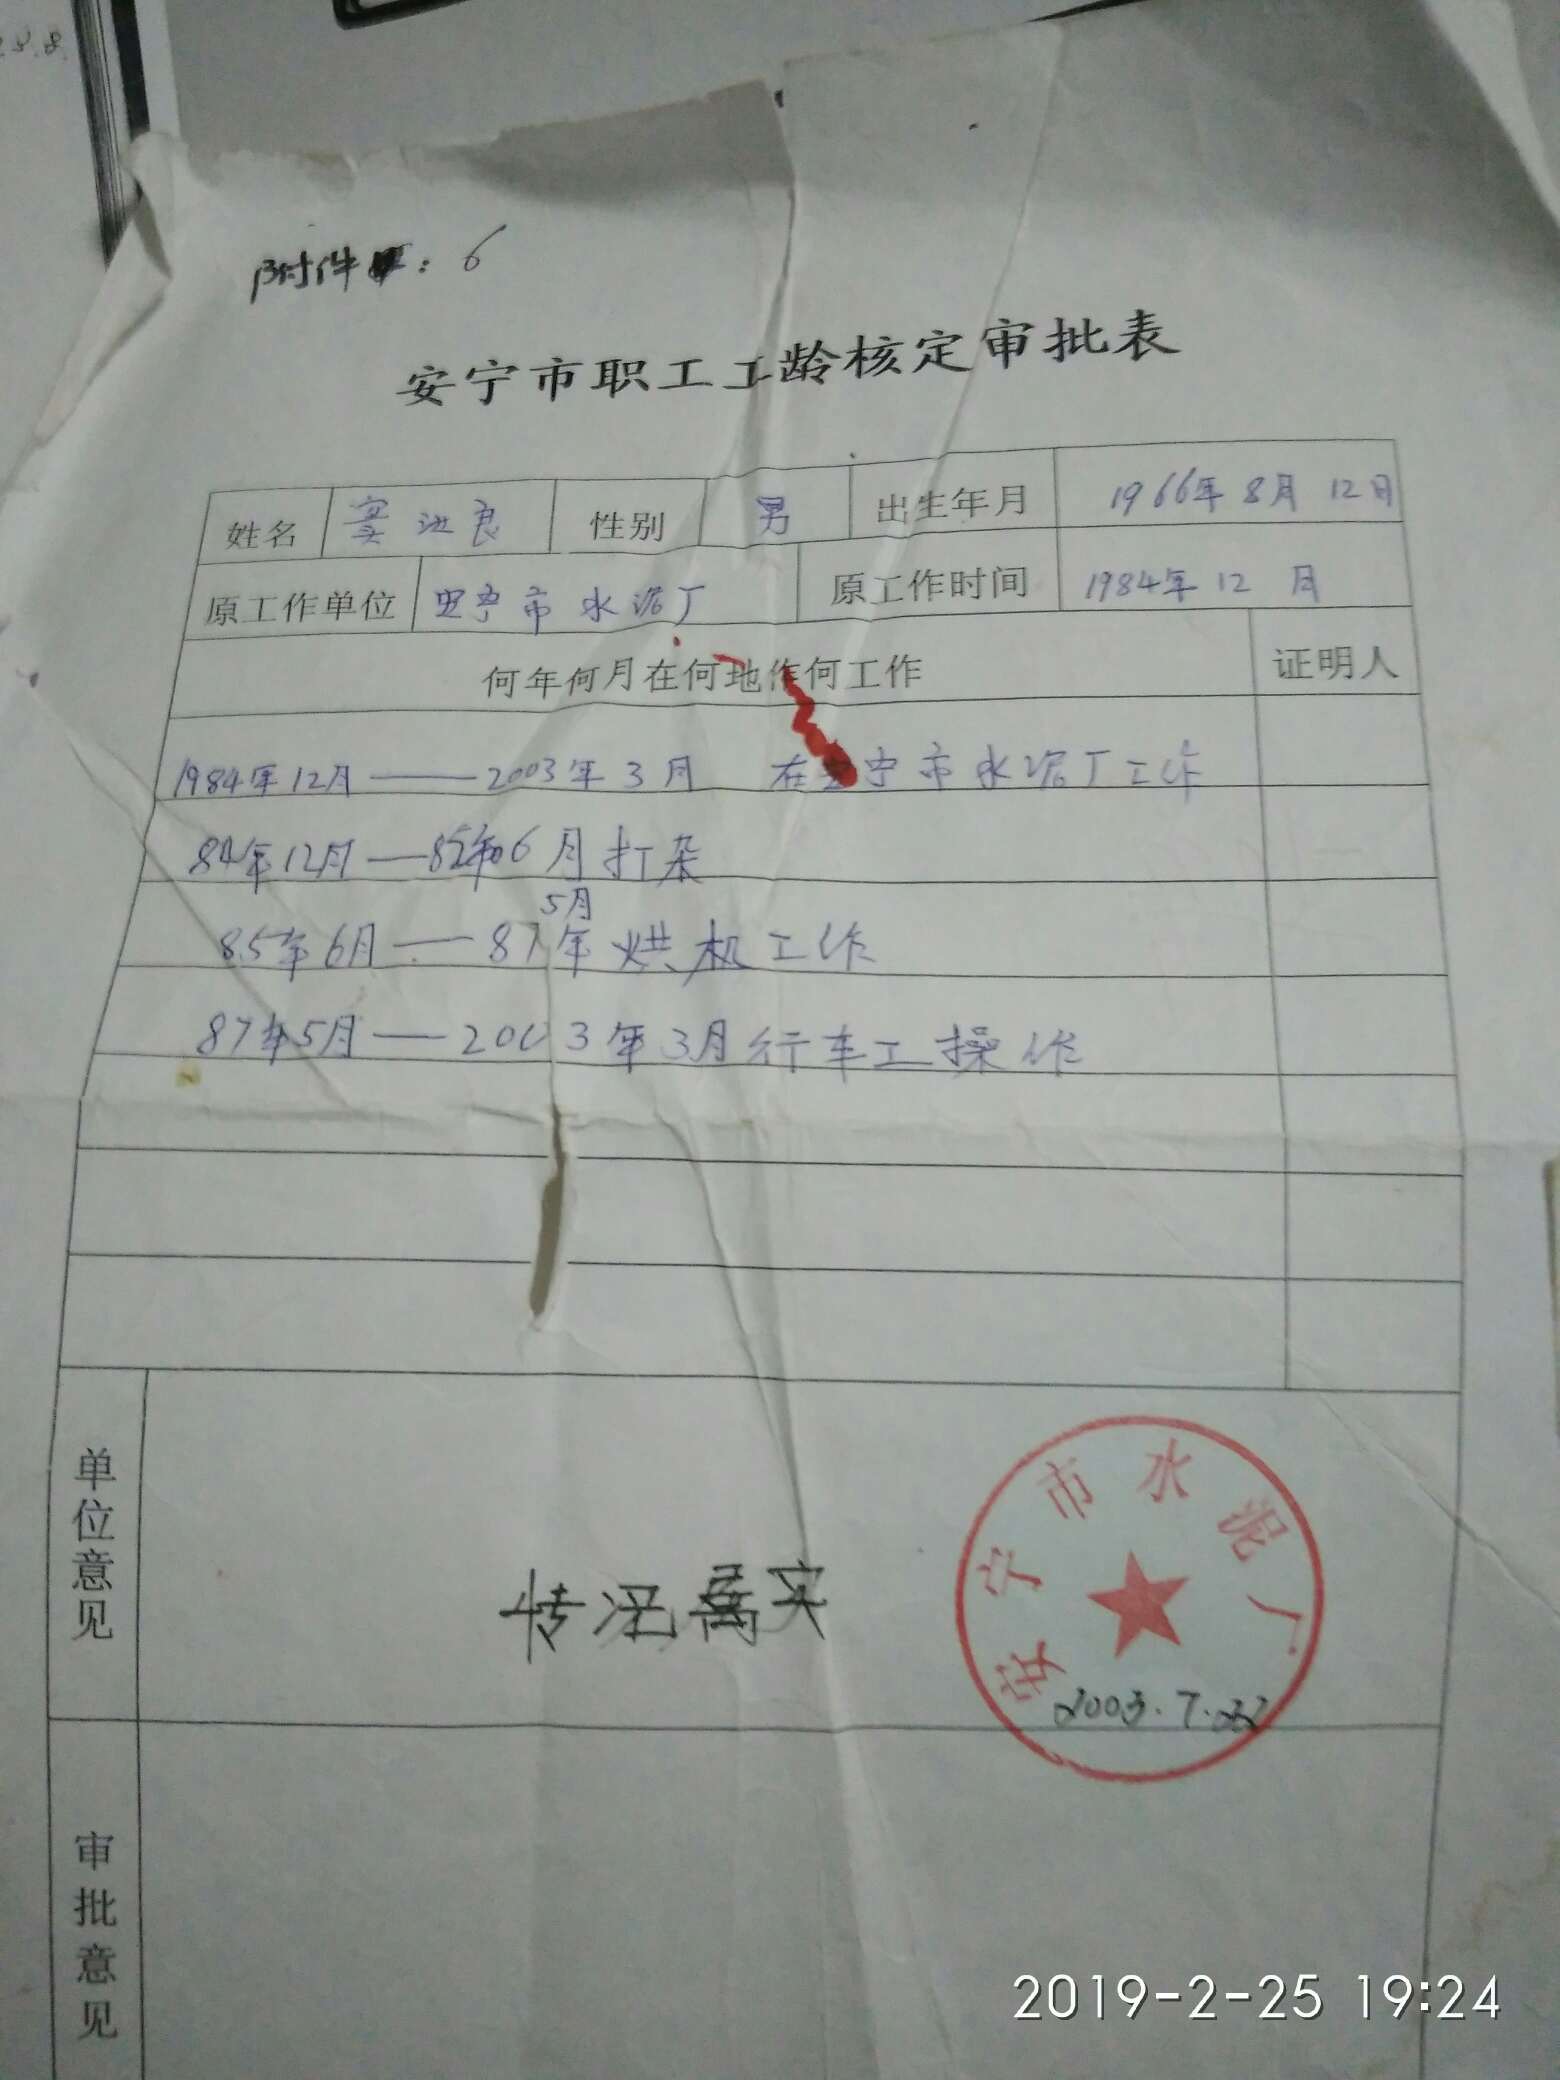 附件：6
安宁市职工工龄核定审批表
姓名 窦洪良 性别 男 出生年月 1966年8月12日
原工作单位 安宁市水泥厂 原工作时间 1984年12月
何年何月在何地作何工作 证明人
1984年12月——2003年3月 在安宁市水泥厂工作
84年12月——85年6月打杂
5月
85年6月——87年烘机工作
87年5月——2003年3月行车工操作
单位意见
情况属实
安宁市水泥厂
2003.7.22
审批意见
2019-2-25 19:24